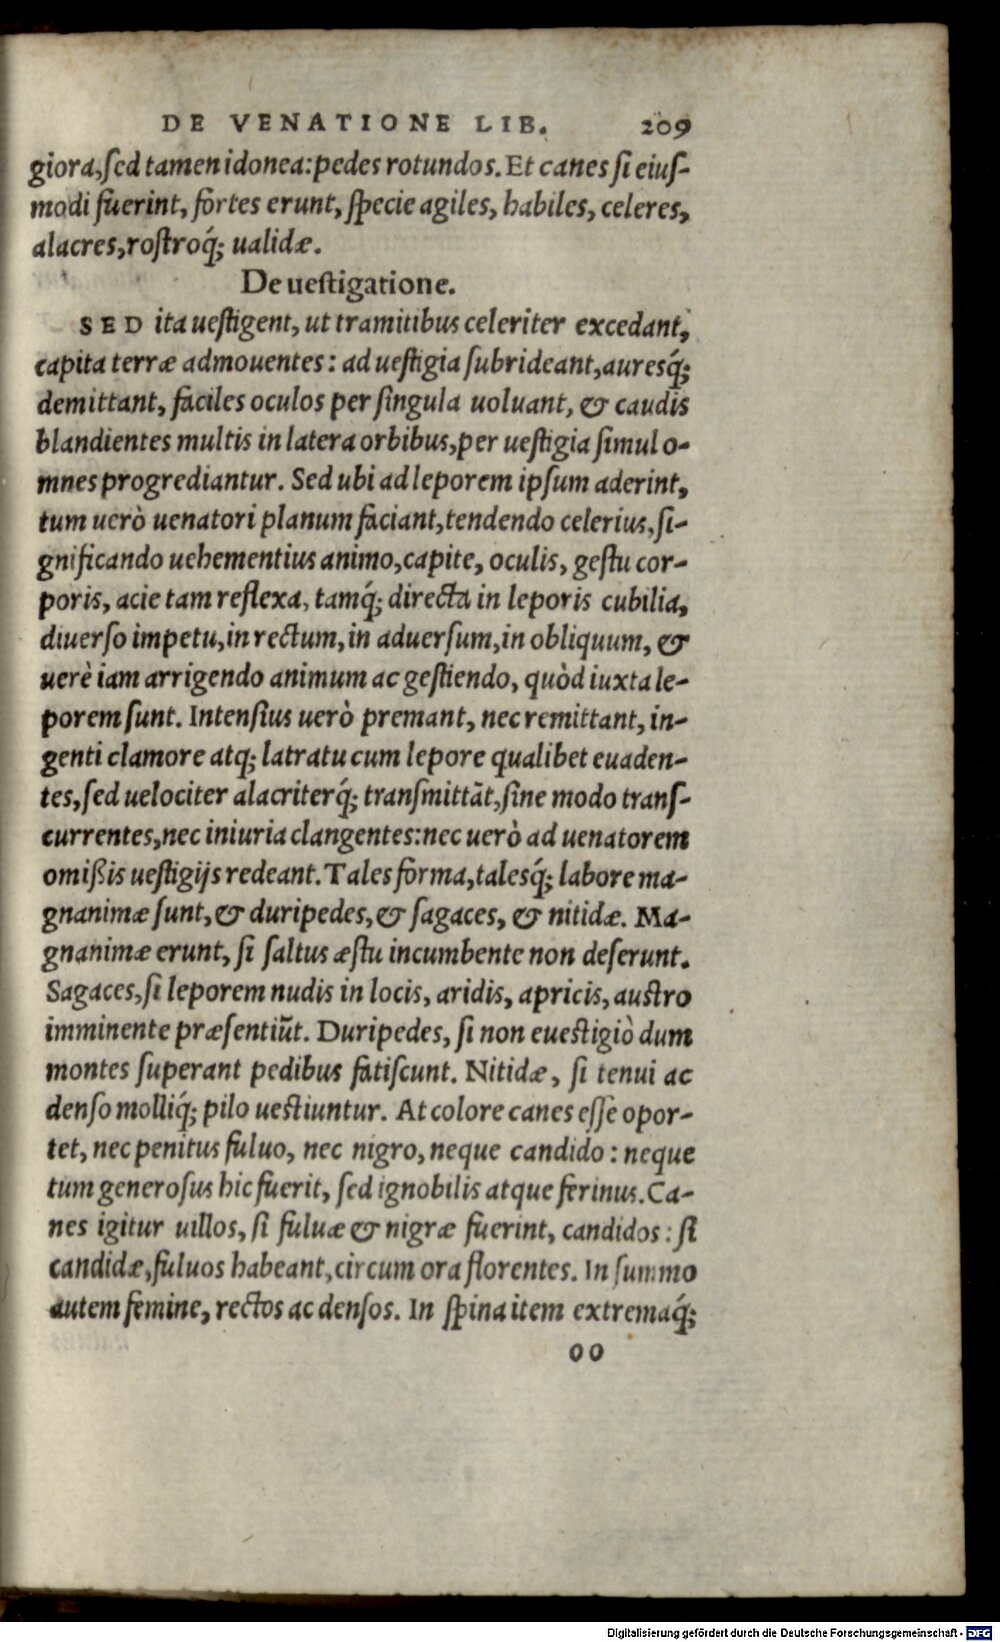 DE VENATIONE LIB. 209
giora, sed tamen idonea: pedes rotundos. Et canes si eius-
modi fuerint, fortes erunt, specie agiles, habiles, celeres,
alacres, rostroq́; ualidæ.
De uestigatione.
SED ita uestigent, ut tramitibus celeriter excedant,
capita terræ admouentes: ad uestigia subrideant, auresq́;
demittant, faciles oculos per singula uoluant, & caudis
blandientes multis in latera orbibus, per uestigia simul o-
mnes progrediantur. Sed ubi ad leporem ipsum aderint,
tum uerò uenatori planum faciant, tendendo celerius, si-
gnificando uehementius animo, capite, oculis, gestu cor-
poris, acie tam reflexa, tamq́; directa in leporis cubilia,
diuerso impetu, in rectum, in aduersum, in obliquum, &
uerè iam arrigendo animum ac gestiendo, quòd iuxta le-
porem sunt. Intensius uerò premant, nec remittant, in-
genti clamore atq; latratu cum lepore qualibet euaden-
tes, sed uelociter alacriterq́; transmittāt, sine modo trans-
currentes, nec iniuria clangentes: nec uerò ad uenatorem
omißis uestigijs redeant. Tales forma, talesq́; labore ma-
gnanimæ sunt, & duripedes, & sagaces, & nitidæ. Ma-
gnanimæ erunt, si saltus æstu incumbente non deserunt.
Sagaces, si leporem nudis in locis, aridis, apricis, austro
imminente præsentiūt. Duripedes, si non euestigiò dum
montes superant pedibus fatiscunt. Nitidæ, si tenui ac
denso molliq́; pilo uestiuntur. At colore canes esse opor-
tet, nec penitus fuluo, nec nigro, neque candido: neque
tum generosus hic fuerit, sed ignobilis atque ferinus. Ca-
nes igitur uillos, si fuluæ & nigræ fuerint, candidos: si
candidæ, fuluos habeant, circum ora florentes. In summo
autem femine, rectos ac densos. In spina item extremaq́;
oo
Digitalisierung gefördert durch die Deutsche Forschungsgemeinschaft - DFG